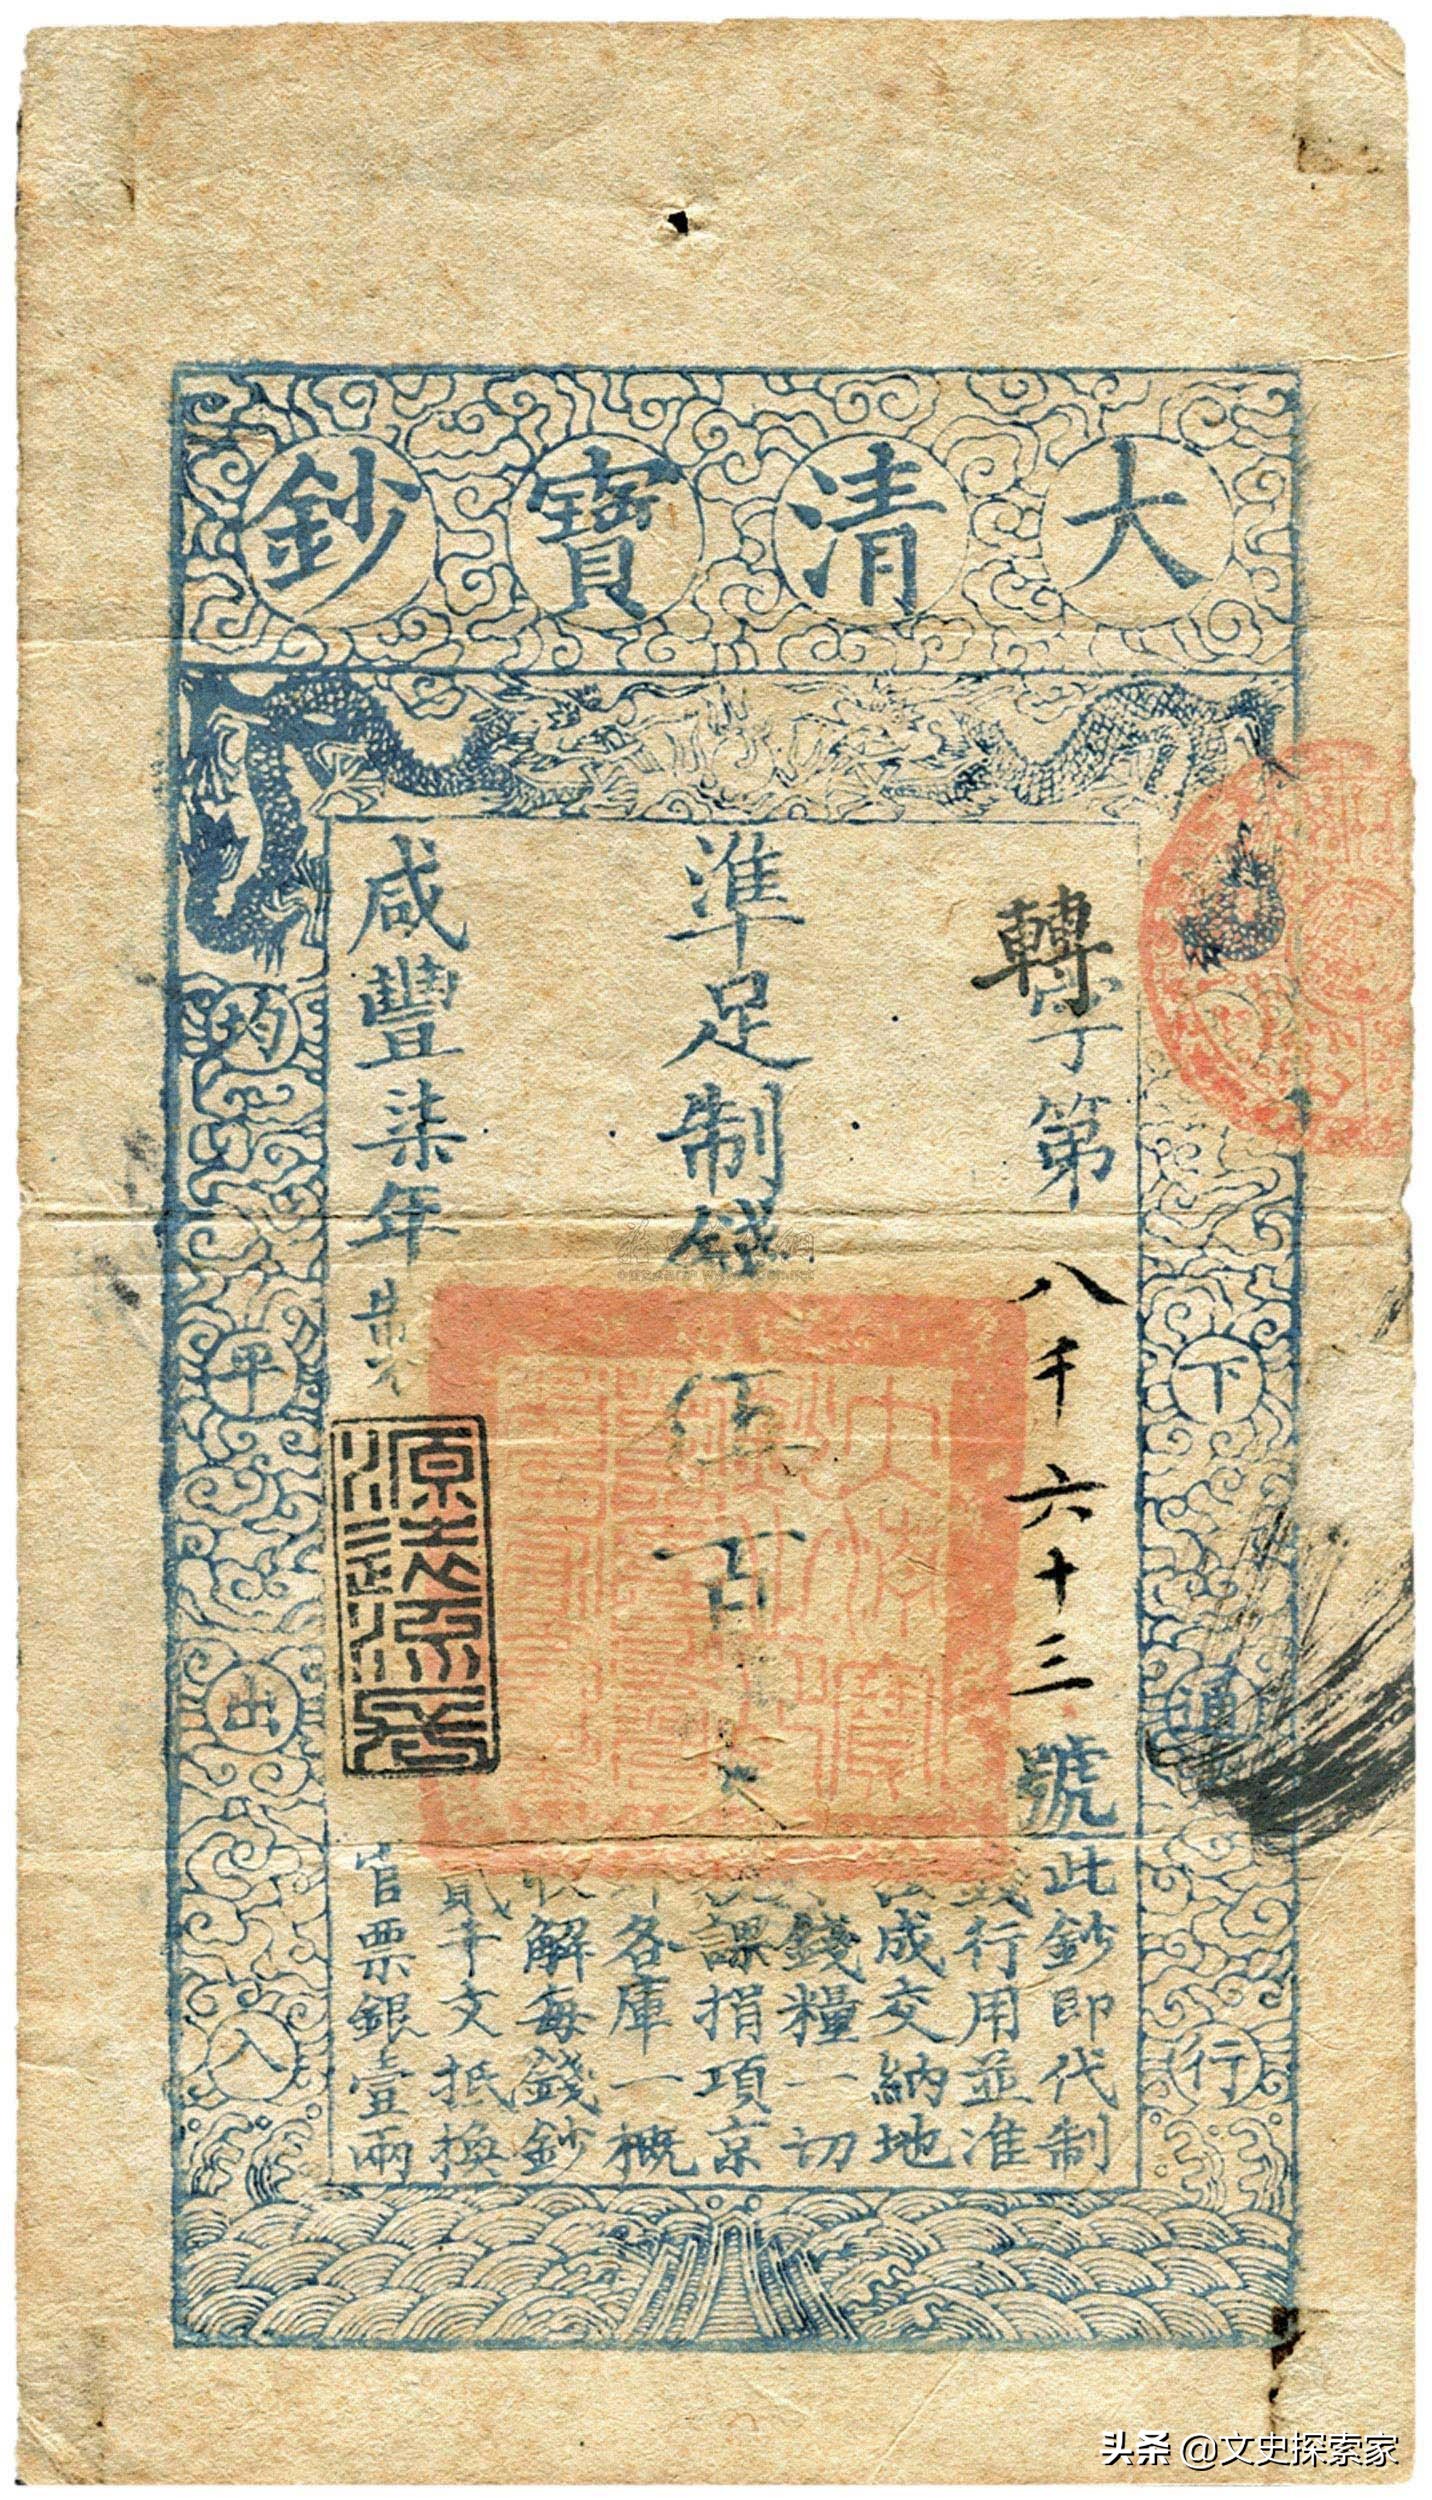 大清寶鈔
下通行
轉字第八千六十三號
準足制錢伍百文
咸豐柒年製
均平出入
此鈔即代制
錢行用並准
成交納地
錢糧一切
課捐項京
外各庫一概
收解每錢鈔
貳千文抵換
官票銀壹兩
大清寶鈔之印
头条 @文史探索家